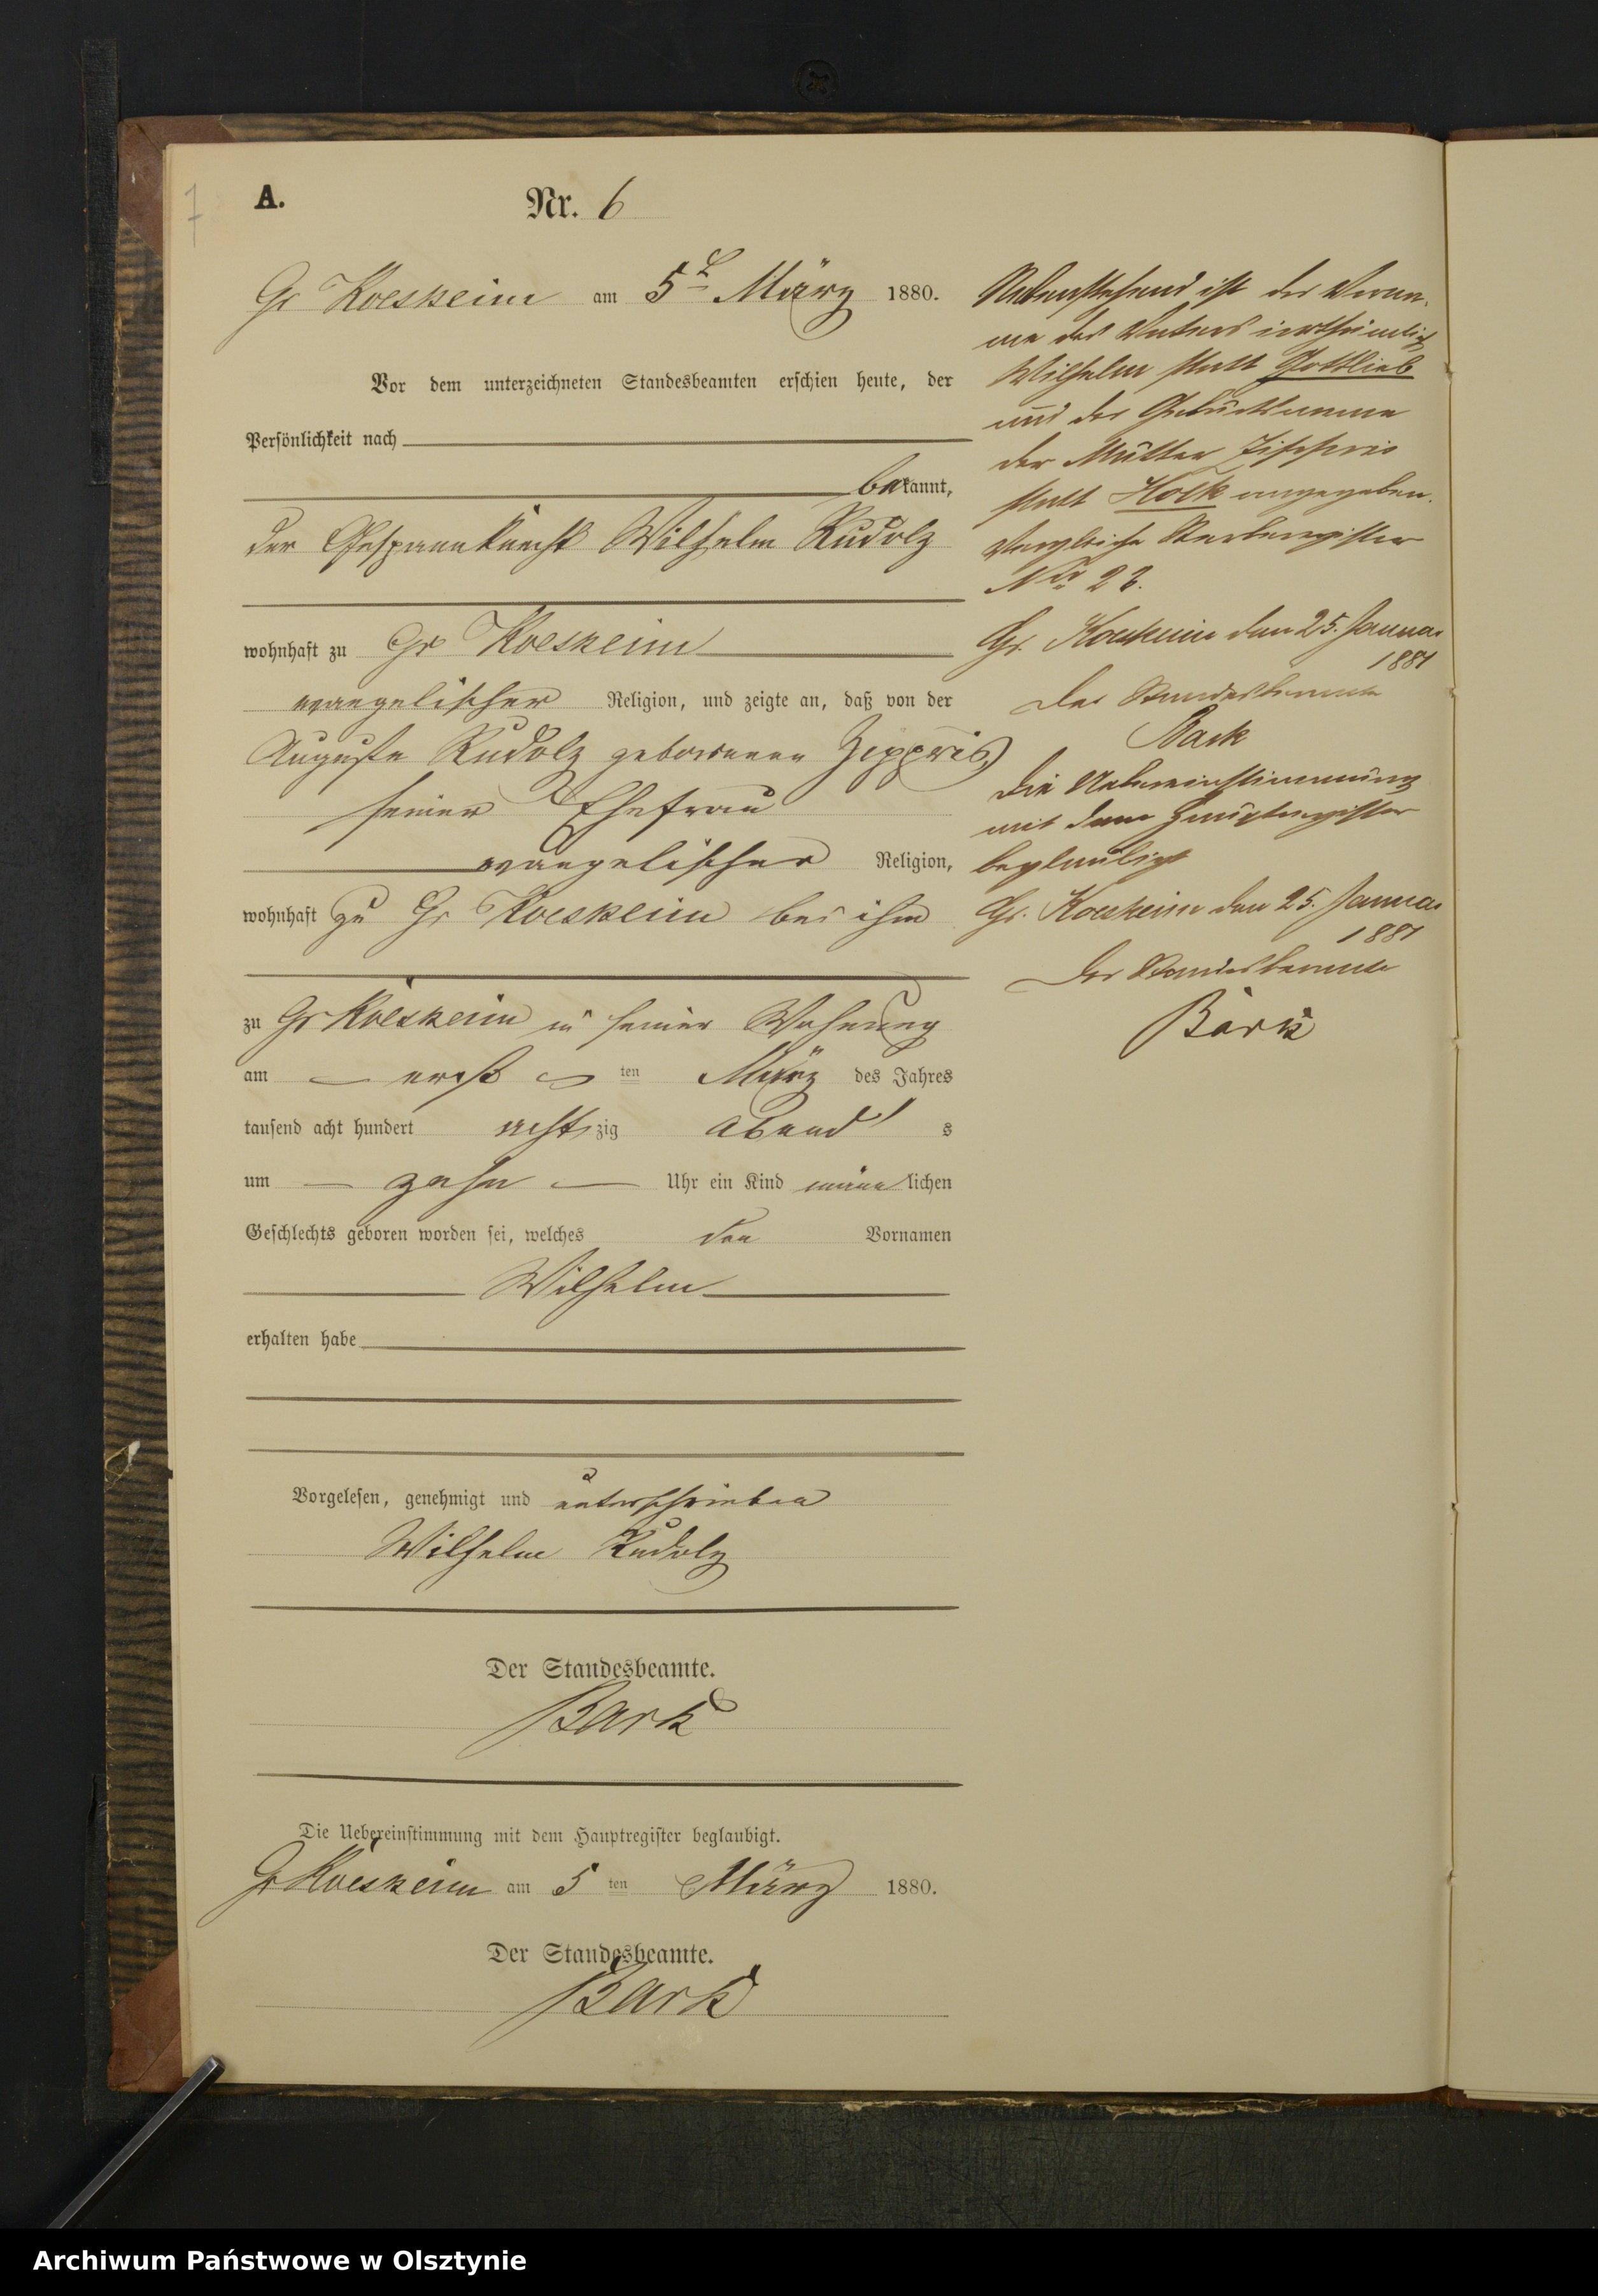 7
A.
Nr. 6
Gr Koeskeim am 5t März 1880.
Vor dem unterzeichneten Standesbeamten erschien heute, der
Persönlichkeit nach
bekannt,
der Gespannknecht Wilhelm Rudolz
wohnhaft zu Gr Koeskeim
evangelischer Religion, und zeigte an, daß von der
Auguste Rudolz geborenen Zippris
seiner Ehefrau
evangelischer Religion,
wohnhaft zu Gr Koeskeim bei ihm
zu Gr Koeskeim in seiner Wohnung
am erst ten März des Jahres
tausend acht hundert achtzig Abends
um zehn Uhr ein Kind männlichen
Geschlechts geboren worden sei, welches den Vornamen
Wilhelm
erhalten habe
Vorgelesen, genehmigt und unterschrieben
Wilhelm Rudolz
Der Standesbeamte.
Bark
Die Uebereinstimmung mit dem Hauptregister beglaubigt.
Gr Koeskeim am 5 ten März 1880.
Der Standesbeamte.
Bark
Nebenstehend ist der Vorna-
me des Vaters irrthümlich
Wilhelm statt Gottlieb
und der Geburtsname
der Mutter
statt Holk angegeben.
Vergleiche Sterberegister
Nro 23.
Gr. Koeskeim den 25. Januar
1881
Der Standesbeamte
Bark
Die Uebereinstimmung
mit dem Hauptregister
beglaubigt
Gr. Koeskeim den 25. Januar
1881
Der Standesbeamte
Bark
Archiwum Państwowe w Olsztynie